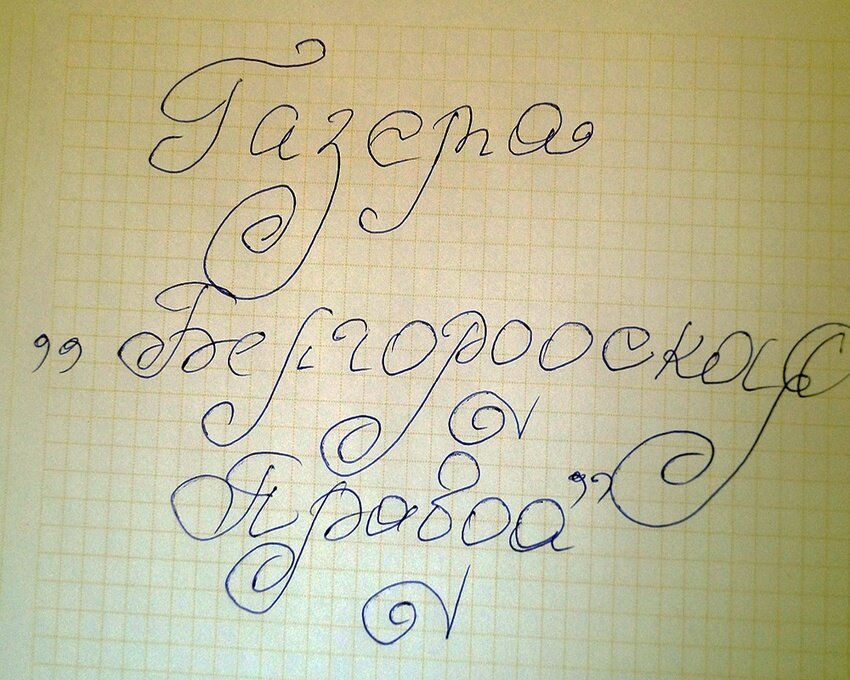 Газета
„Белгородская
Правда”